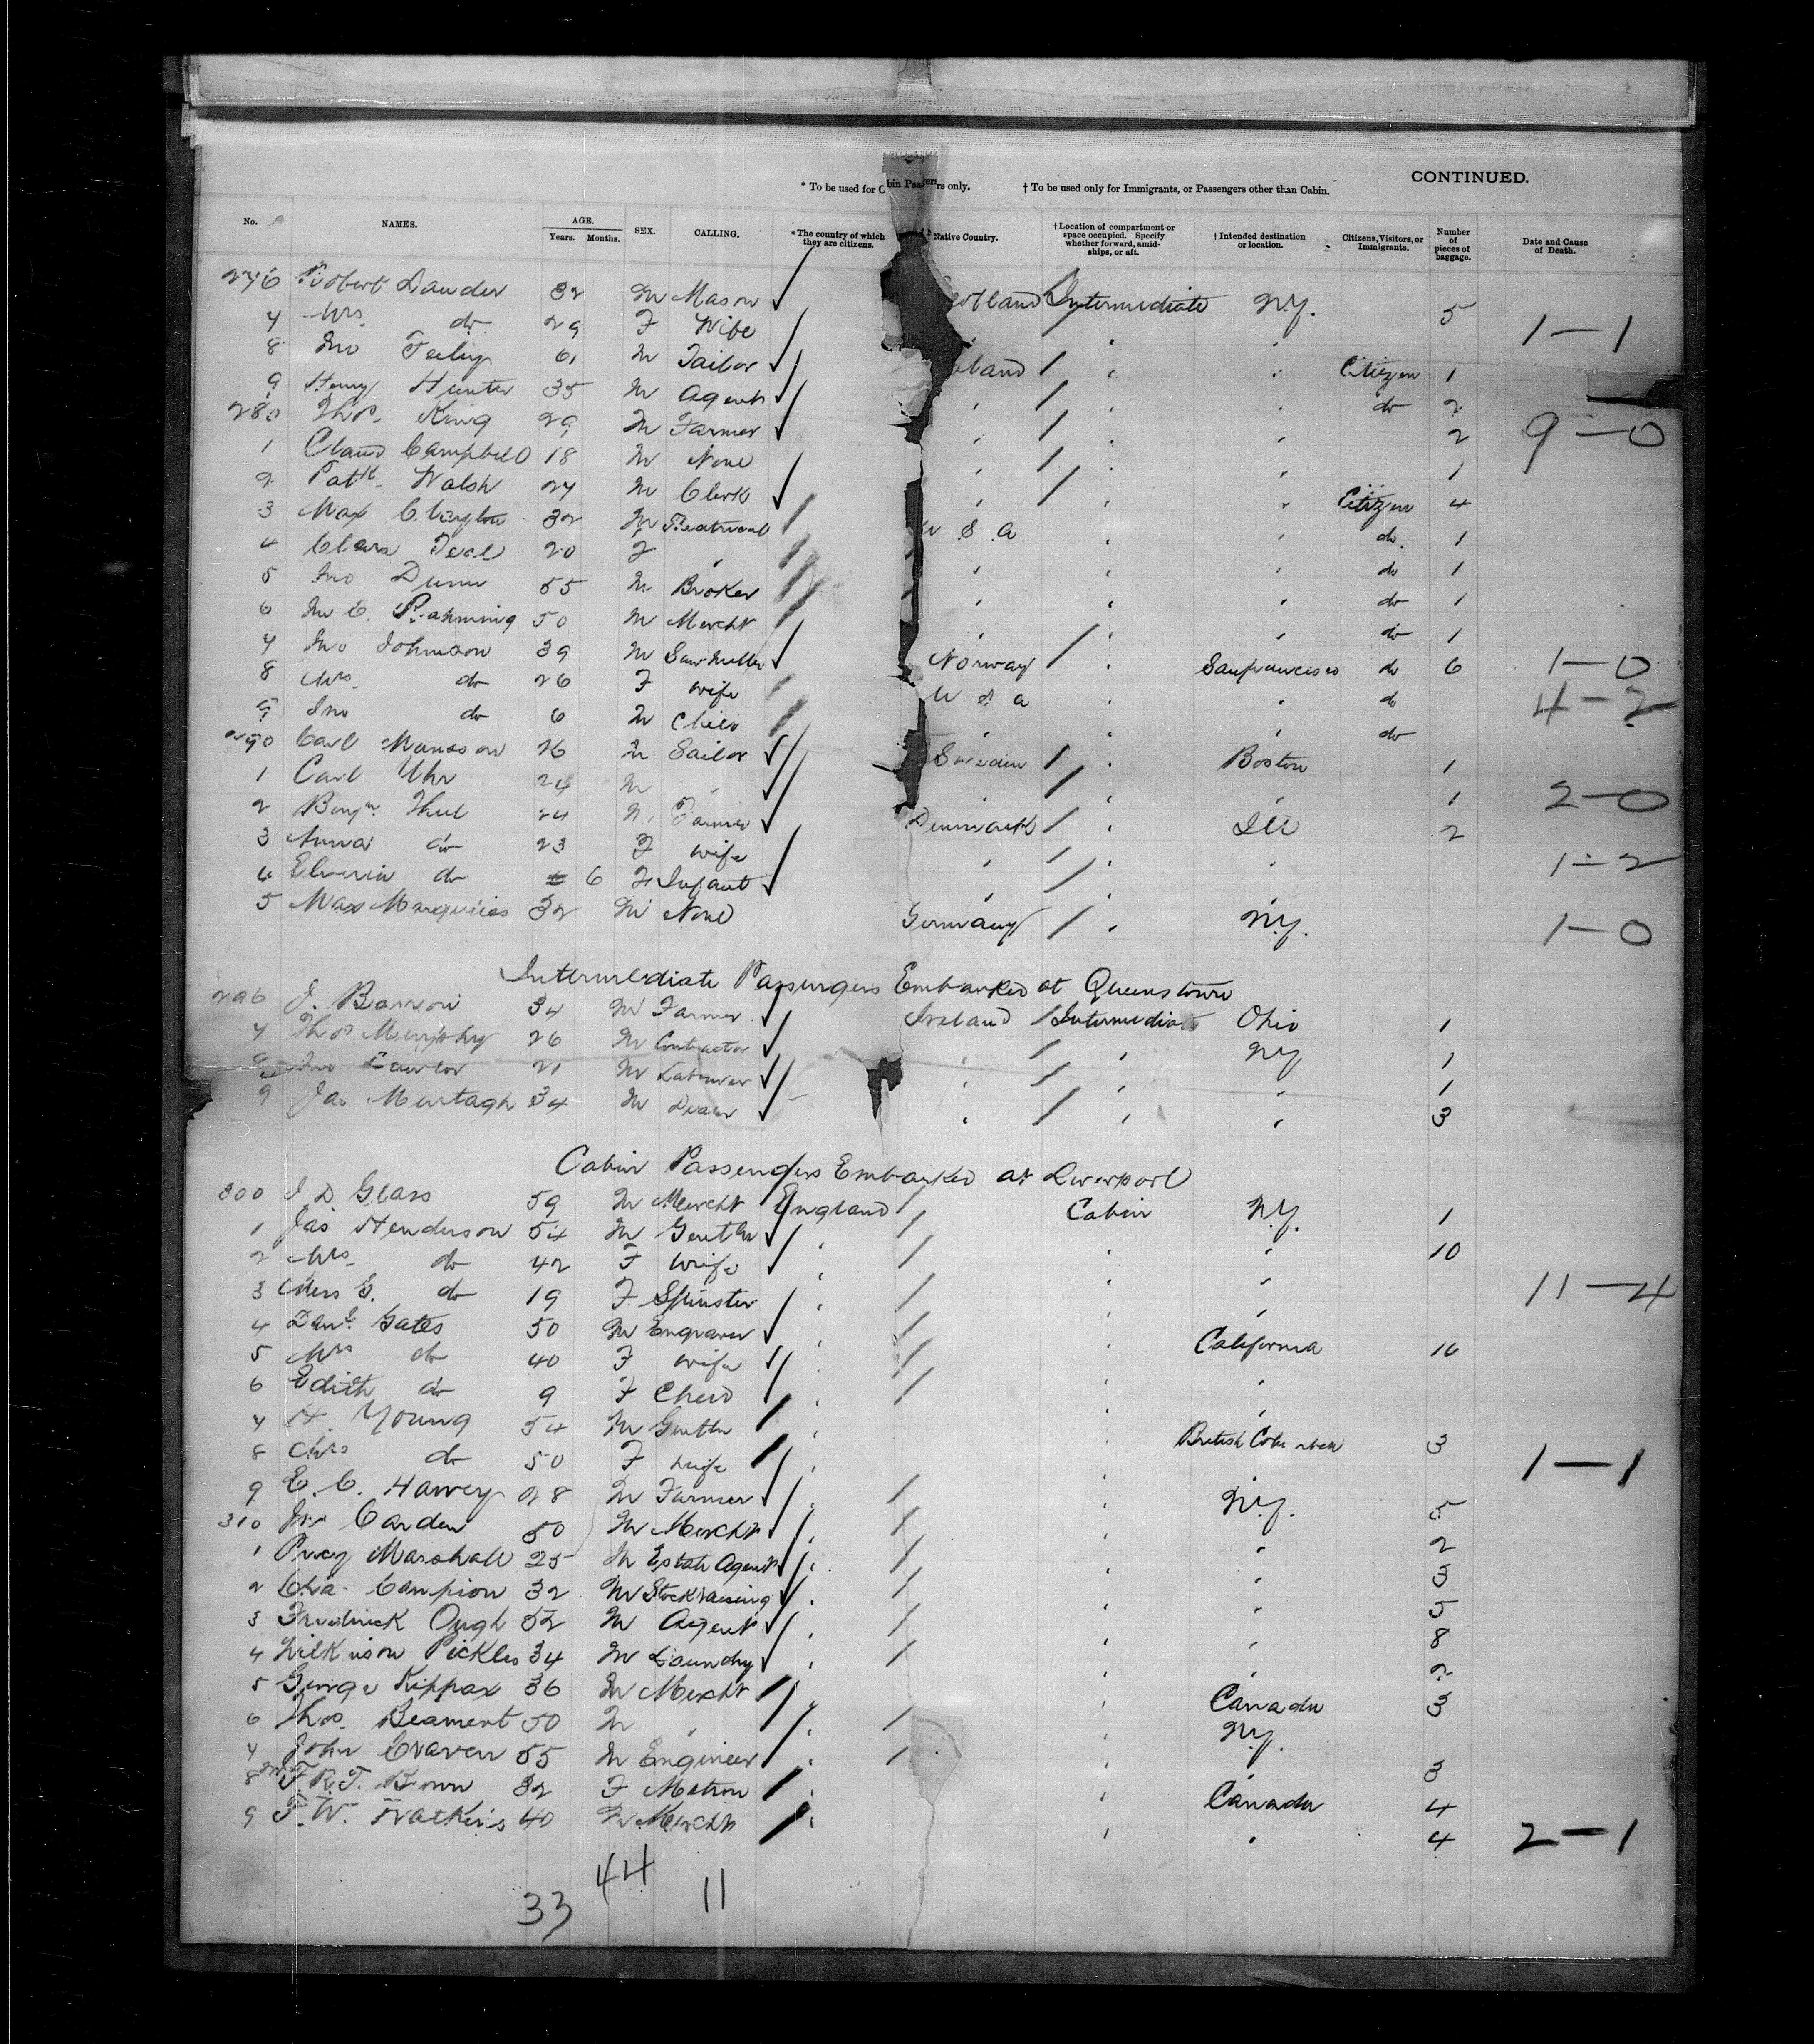 CONTINUED.
* To be used for Cabin Passengers only. † To be used only for Immigrants, or Passengers other than Cabin.
No. NAMES. AGE. Years. Months. SEX. CALLING. * The country of which they are citizens. Native Country. † Location of compartment or space occupied. Specify whether forward, amidships, or aft. † Intended destination or location. Citizens, Visitors, or Immigrants. Number of pieces of baggage. Date and Cause of Death.
276 Robert Lauder 32 M Mason Scotland Intermediate N.Y. 5
7 Mrs. do 29 F Wife " " " 1-1
8 Jno 61 M Tailor land " " Citizen 1
9 Henry Hunter 35 M Agent " " " do 2
280 Thos. King 29 M Farmer " " " 2 9-0
1 Claud Campbell 18 M None " " " 1
2 Patk. Walsh 27 M Clerk " " " Citizen 4
3 Max 32 M Theatrical U S A " " do. 1
4 Clara 20 F " " " " do 1
5 Jno Dunn 55 M Broker " " " do 1
6 50 M Mercht " " " do 1
7 Jno Johnson 39 M Norway " Sanfrancisco do 6 1-0
8 Mrs. do 26 F wife U S A " " do 4-2
9 Jno do 6 M Child " " " do
290 Carl Monsson 26 M Sailor Sweden " Boston 1
1 Carl Uhr 24 M " " " " 1 2-0
2 Benjn. 24 M Farmer Denmark " Ill 2
3 Anna do 23 F wife " " " 1-2
4 do 6 F Infant " " "
5 Max 32 M None Germany " N.Y. 1-0
Intermediate Passengers Embarked at Queenstown
296 J. 34 M Farmer Ireland Intermediate Ohio 1
7 Thos Murphy 26 M Contractor " " N.Y. 1
8 Jno Lawlor 21 M Labourer " " " 1
9 Jas Murtagh 34 M " " " 3
Cabin Passengers Embarked at Liverpool
300 J. D. Glass 59 M Mercht England Cabin N.Y. 1
1 Jas Henderson 54 M Gentln " " " 10
2 Mrs do 42 F Wife " " "
3 Miss E. do 19 F Spinster " " " 11-4
4 Danl. Gates 50 M Engraver " " California 16
5 Mrs do 40 F wife " " "
6 Edith do 9 F Child " " "
7 H. Young 54 M Gentln " " British Columbia 3
8 Mrs do 50 F wife " " 1-1
9 E. C. Harvey 28 M Farmer " " N.Y. 5
310 Jno Carden 50 M Mercht " " " 2
1 Percy Marshall 25 M Estate Agent " " " 3
2 Chas Campion 32 M Stockraising " " " 5
3 Fredrick Ough 52 M Agent " " " 8
4 Wilkinson Pickles 34 M Laundry " " " 2
5 George Kippax 36 M Mercht " " Canada 3
6 Thos. Beament 50 M " " " N.Y.
7 John Craven 55 M Engineer " " " 3
8 Mrs F. R. T. Brown 32 F Matron " " Canada 4
9 F. W. Watkins 40 M Mercht " " " 4 2-1
33 44 11